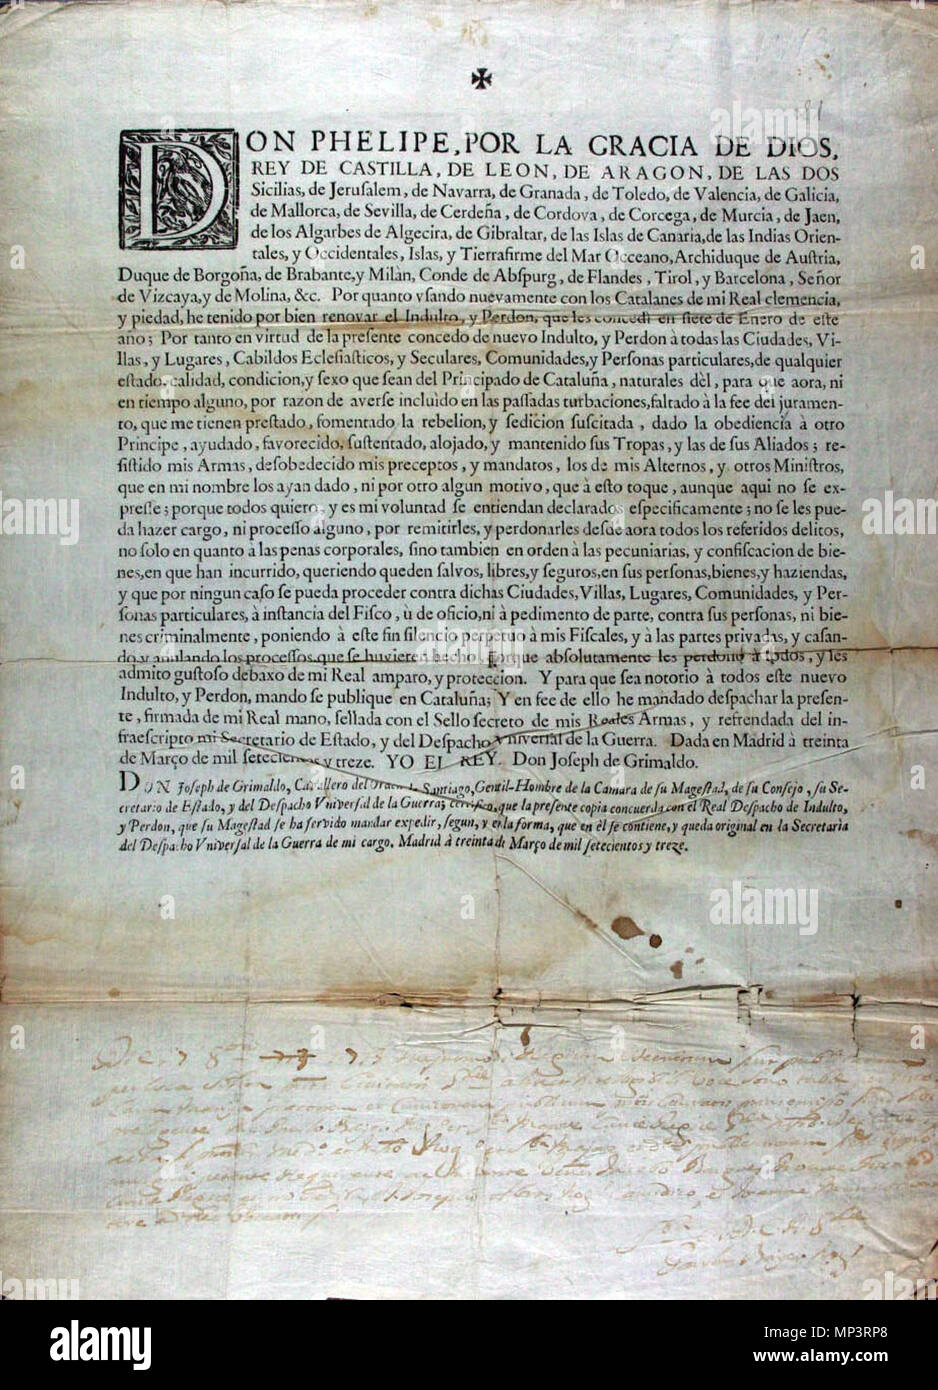 181
DON PHELIPE, POR LA GRACIA DE DIOS,
REY DE CASTILLA, DE LEON, DE ARAGON, DE LAS DOS
Sicilias, de Jeruſalem, de Navarra, de Granada, de Toledo, de Valencia, de Galicia,
de Mallorca, de Sevilla, de Cerdeña, de Cordova, de Corcega, de Murcia, de Jaen,
de los Algarbes de Algecira, de Gibraltar, de las Islas de Canaria, de las Indias Orien-
tales, y Occidentales, Islas, y Tierrafirme del Mar Occeano, Archiduque de Auſtria,
Duque de Borgoña, de Brabante, y Milàn, Conde de Abſpurg, de Flandes, Tirol, y Barcelona, Señor
de Vizcaya, y de Molina, &c. Por quanto vſando nuevamente con los Catalanes de mi Real clemencia,
y piedad, he tenido por bien renovar el Indulto, y Perdon, que les concedì en ſiete de Enero de eſte
año; Por tanto en virtud de la preſente concedo de nuevo Indulto, y Perdon à todas las Ciudades, Vi-
llas, y Lugares, Cabildos Ecleſiaſticos, y Seculares, Comunidades, y Perſonas particulares, de qualquier
eſtado, calidad, condicion, y ſexo que ſean del Principado de Cataluña, naturales dèl, para que aora, ni
en tiempo alguno, por razon de averſe incluìdo en las paſſadas turbaciones, faltado à la fee del juramen-
to, que me tienen preſtado, fomentado la rebelion, y ſedicion ſuſcitada, dado la obediencia à otro
Principe, ayudado, favorecido, ſuſtentado, alojado, y mantenido ſus Tropas, y las de ſus Aliados; re-
ſiſtido mis Armas, deſobedecido mis preceptos, y mandatos, los de mis Alternos, y otros Miniſtros,
que en mi nombre los ayan dado, ni por otro algun motivo, que à eſto toque, aunque aqui no ſe ex-
preſſe; porque todos quiero, y es mi voluntad ſe entiendan declarados eſpecificamente; no ſe les pue-
da hazer cargo, ni proceſſo alguno, por remitirles, y perdonarles deſde aora todos los referidos delitos,
no ſolo en quanto à las penas corporales, ſino tambien en orden à las pecuniarias, y confiſcacion de bie-
nes, en que han incurrido, queriendo queden ſalvos, libres, y ſeguros, en ſus perſonas, bienes, y haziendas,
y que por ningun caſo ſe pueda proceder contra dichas Ciudades, Villas, Lugares, Comunidades, y Per-
ſonas particulares, à inſtancia del Fiſco, ù de oficio, ni à pedimento de parte, contra ſus perſonas, ni bie-
nes criminalmente, poniendo à eſte fin ſilencio perpetuo à mis Fiſcales, y à las partes privadas, y caſan-
do, y anulando los proceſſos, que ſe huvieren hecho, porque abſolutamente les perdono à todos, y les
admito guſtoſo debaxo de mi Real amparo, y proteccion. Y para que ſea notorio à todos eſte nuevo
Indulto, y Perdon, mando ſe publique en Cataluña; Y en fee de ello he mandado deſpachar la preſen-
te, firmada de mi Real mano, ſellada con el Sello ſecreto de mis Reales Armas, y refrendada del in-
fraeſcripto mi Secretario de Eſtado, y del Deſpacho Vniverſal de la Guerra. Dada en Madrid à treinta
de Março de mil ſetecientos y treze. YO EL REY. Don Joſeph de Grimaldo.
DON Joſeph de Grimaldo, Cavallero del Orden de Santiago, Gentil-Hombre de la Camara de ſu Mageſtad, de ſu Conſejo, ſu Se-
cretario de Eſtado, y del Deſpacho Vniverſal de la Guerra; certifico, que la preſente copia concuerda con el Real Deſpacho de Indulto,
y Perdon, que ſu Mageſtad ſe ha ſervido mandar expedir, ſegun, y en la forma, que en èl ſe contiene, y queda original en la Secretaria
del Deſpacho Vniverſal de la Guerra de mi cargo. Madrid à treinta de Março de mil ſetecientos y treze.
alamy
Image ID: MP3RP8
www.alamy.com